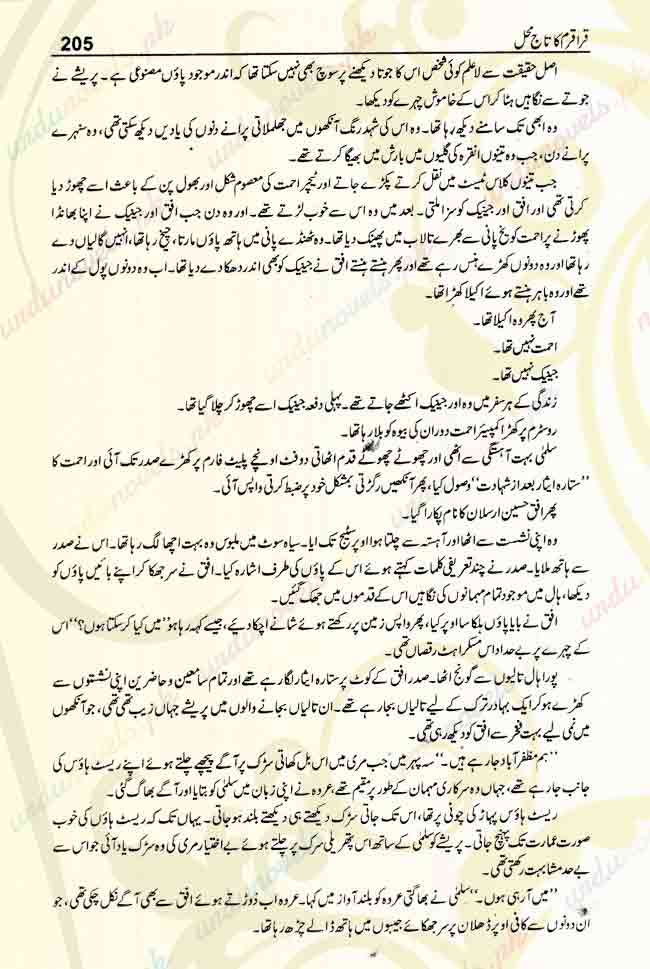 205
قراقرم کا تاج محل
اصل حقیقت سے لاعلم کوئی شخص اس کا جوتا دیکھنے پر سوچ بھی نہیں سکتا تھا کہ اندر موجود پاؤں مصنوعی ہے۔ پریشے نے
جوتے سے نگاہیں ہٹا کر اس کے خاموش چہرے کو دیکھا۔
وہ ابھی تک سامنے دیکھ رہا تھا۔ وہ اس کی شہد رنگ آنکھوں میں جھلملاتی پرانے دنوں کی یادیں دیکھ سکتی تھی، وہ سنہرے
پرانے دن، جب وہ تینوں انقرہ کی گلیوں میں بارش میں بھیگا کرتے تھے۔
جب تینوں کلاس ٹیسٹ میں نقل کرتے پکڑے جاتے اور ٹیچر احمت کی معصوم شکل اور بھول پن کے باعث اسے چھوڑ دیا
کرتی تھی اور افق اور جینیک کو سزا ملتی۔ بعد میں وہ اس سے خوب لڑتے تھے۔ اور وہ دن جب افق اور جینیک نے اپنا بھانڈا
پھوڑنے پر احمت کو یخ پانی سے بھرے تالاب میں پھینک دیا تھا۔ وہ ٹھنڈے پانی میں ہاتھ پاؤں مارتا، چیخ رہا تھا، انہیں گالیاں دے
رہا تھا اور وہ دونوں کھڑے ہنس رہے تھے اور پھر ہنستے ہنستے افق نے جینیک کو بھی اندر دھکا دے دیا تھا۔ اب وہ دونوں پول کے اندر
تھے اور وہ باہر ہنستے ہوئے اکیلا کھڑا تھا۔
آج پھر وہ اکیلا تھا۔
احمت نہیں تھا۔
جینیک نہیں تھا۔
زندگی کے ہر سفر میں وہ اور جینیک اکٹھے جاتے تھے۔ پہلی دفعہ جینیک اسے چھوڑ کر چلا گیا تھا۔
روسٹرم پر کھڑا کمپیئر احمت دوران کی بیوہ کو بلا رہا تھا۔
سلمٰی بہت آہستگی سے اٹھی اور چھوٹے چھوٹے قدم اٹھاتی دو فٹ اونچے پلیٹ فارم پر کھڑے صدر تک آئی اور احمت کا
”ستارہ ایثار بعد از شہادت“ وصول کیا، پھر آنکھیں رگڑتی بمشکل خود پر ضبط کرتی واپس آئی۔
پھر افق حسین ارسلان کا نام پکارا گیا۔
وہ اپنی نشست سے اٹھا اور آہستہ سے چلتا ہوا اوپر سٹیج تک آیا۔ سیاہ سوٹ میں ملبوس وہ بہت اچھا لگ رہا تھا۔ اس نے صدر
سے ہاتھ ملایا۔ صدر نے چند تعریفی کلمات کہتے ہوئے اس کے پاؤں کی طرف اشارہ کیا۔ افق نے سر جھکا کر اپنے بائیں پاؤں کو
دیکھا، ہال میں موجود تمام مہمانوں کی نگاہیں اس کے قدموں میں جھک گئیں۔
افق نے بایاں پاؤں ہلکا سا اوپر کیا، پھر واپس زمین پر رکھتے ہوئے شانے اچکا دیے، جیسے کہہ رہا ہو ”میں کیا کر سکتا ہوں؟“ اس
کے چہرے پر بے حد اداس مسکراہٹ رقصاں تھی۔
پورا ہال تالیوں سے گونج اٹھا۔ صدر افق کے کوٹ پر ستارہ ایثار لگا رہے تھے اور تمام سامعین و حاضرین اپنی نشستوں سے
کھڑے ہو کر ایک بہادر ترک کے لیے تالیاں بجا رہے تھے۔ ان تالیاں بجانے والوں میں پریشے جہاں زیب تھی تھی، جو آنکھوں
میں نمی لیے بہت فخر سے افق کو دیکھ رہی تھی۔
”ہم مظفر آباد جا رہے ہیں۔“ سہ پہر میں جب مری میں اس بل کھاتی سڑک پر آگے پیچھے چلتے ہوئے اپنے ریسٹ ہاؤس کی
جانب جا رہے تھے، جہاں وہ سرکاری مہمان کے طور پر مقیم تھے، عروہ نے اپنی زبان میں سلمٰی کو بتایا اور آگے بھاگ گئی۔
ریسٹ ہاؤس پہاڑ کی چوٹی پر تھا، اس تک جاتی سڑک دیکھتے ہی دیکھتے بلند ہو جاتی۔ یہاں تک کہ ریسٹ ہاؤس کی خوب
صورت عمارت تک پہنچ جاتی۔ پریشے کو سلمٰی کے ساتھ اس پتھریلی سرک پر چلتے ہوئے بے اختیار مری کی وہ سڑک یاد آئی جو اس سے
بے حد مشابہت رکھتی تھی۔
”میں آ رہی ہوں۔“ سلمٰی نے بھاگتی عروہ کو بلند آواز میں کہا۔ عروہ اب دوڑتے ہوئے افق سے بھی آگے نکل چکی تھی، جو
ان دونوں سے کافی اوپر ڈھلان پر سر جھکائے جیبوں میں ہاتھ ڈالے چڑھ رہا تھا۔